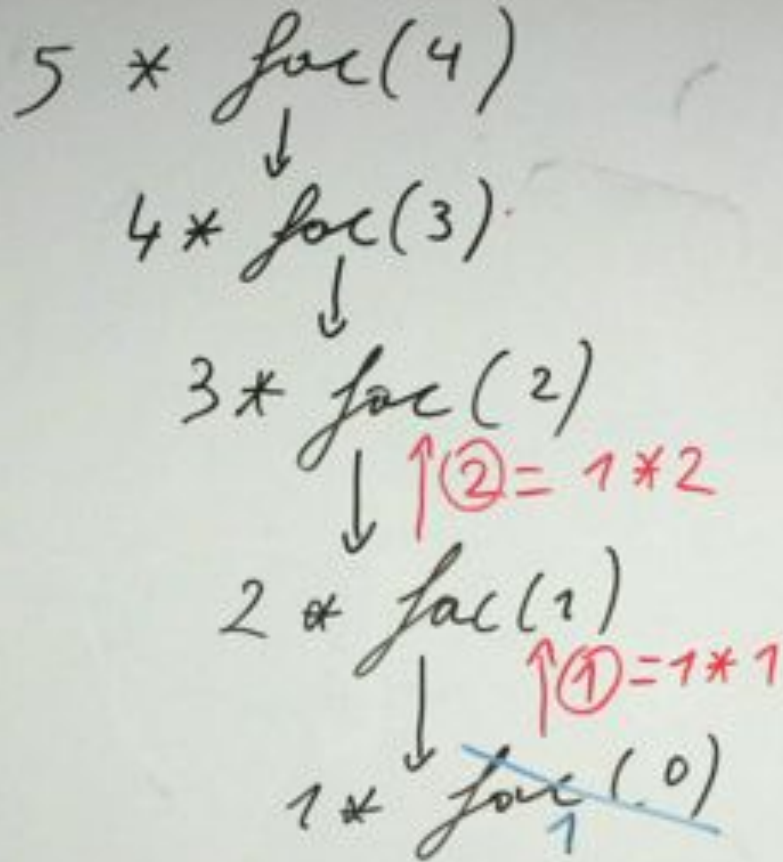 5 * fac(4)
4 * fac(3)
3 * fac(2)
↑②= 1 * 2
2 * fac(1)
↑①=1 * 1
1 * fac(0)
1